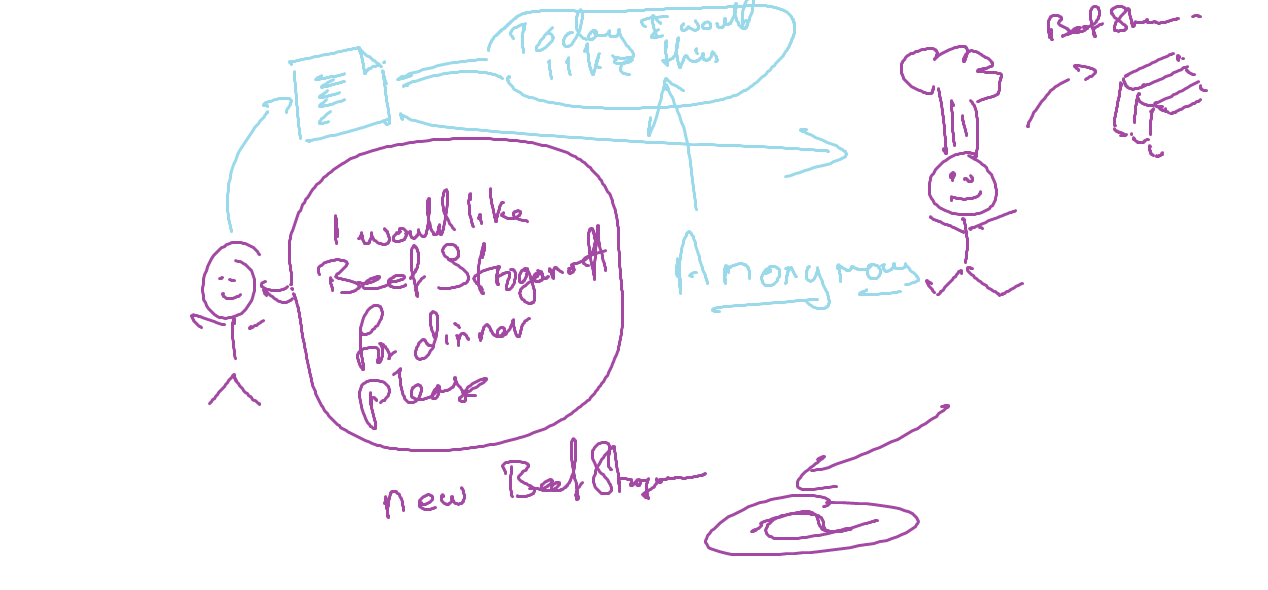 Today I would
like this
Beef Str
I would like
Beef Stroganoff
for dinner
please
Anonymous
new Beef Strogan